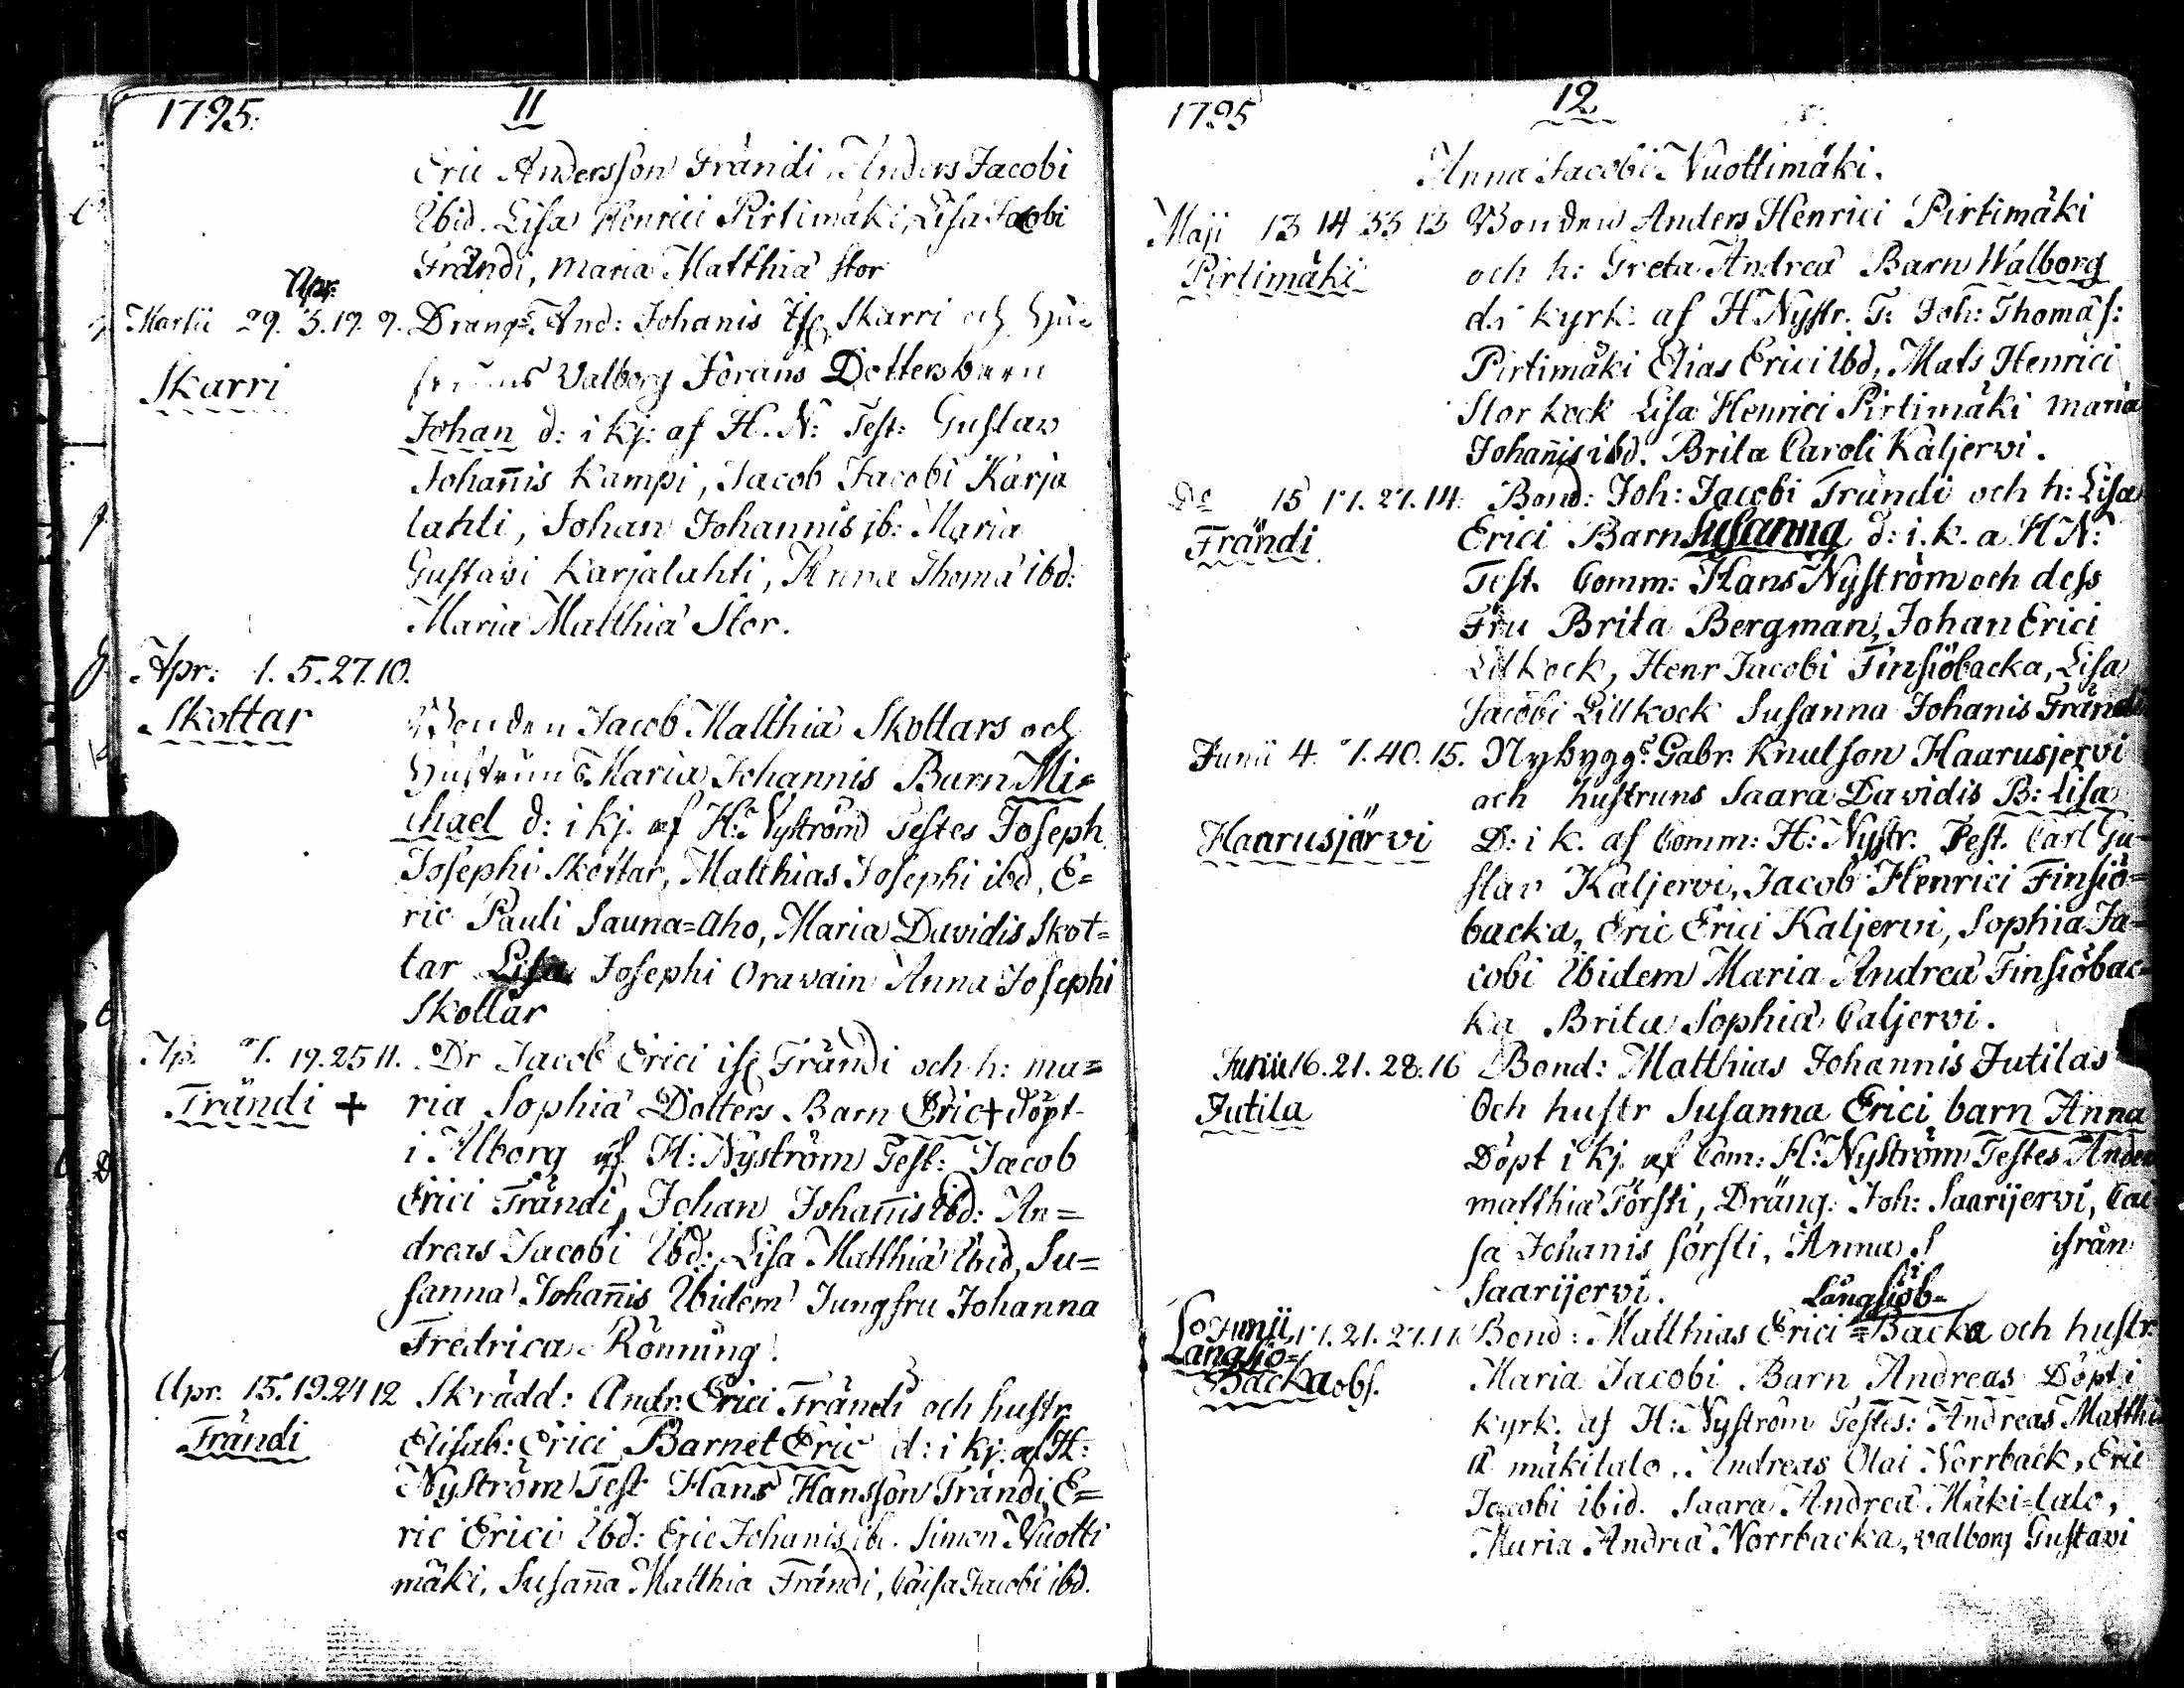 1795. 11
Eric Andersson Frändi, Anders Jacobi
Ibid. Lisa Henrici Pirtimäki, Lisa Jacobi
Frändi, Maria Matthiä Stor
Apr.
Martii 29. 5. 19. 9. Dräng And: Johanis Skarri och Hu-
Skarri
Valborg Jörans Dotters barn
Johan d: i kj: af H. N: Test: Gustav
Johan̄is Kampi, Jacob Jacobi Karja
lahti, Johan Johannis ib: Maria
Gustavi Karjalahti, Anna Thomä ibd:
Maria Matthiä Stor.
Apr: 1. 5. 27. 10.
Skottar
Bonden Jacob Matthiä Skottars och
Hustruns Maria Johannis Barn Mi=
chael d: i kj. af H: Nyström Testes Joseph
Josephi Skottar, Matthias Josephi ibd, E=
ric Pauli Sauna=aho, Maria Davidis Skot=
tar Lisa Josephi Oravain Anna Josephi
Skottar
Ap. 7. 19. 25 11. Dr Jacob Erici Frändi och h: ma=
Frändi +
ria Sophiä Dotters Barn Eric + döpt
i Alborg af H: Nyström Test: Jacob
Erici Frändi, Johan Johan̄is ibd: An=
dreas Jacobi Ibd: Lisa Matthiä Ibid, Su=
sanna Johan̄is Ibidem Jungfru Johanna
Fredrica Rönning.
Apr. 15. 19. 24 12 Skrädd: Andr. Erici Frändi och hustr
Frändi
Elisab: Erici Barnet Eric d: i kj. af H:
Nyström Test Hans Hansson Frändi, E=
ric Erici Ibd: Eric Johanis ib. Simon Nuotti
mäki, Susan̄a Matthiä Frändi, Caisa Jacobi ibd.
1795 12
Anna Jacobi Nuottimäki.
Maji 13 14 33 13 Bonden Anders Henrici Pirtimäki
Pirtimäki
och h: Greta Andreä Barn Walborg
d. i kyrk. af H Nystr. T: Joh: Thomäs:
Pirtimäki Elias Erici ibd, Mats Henrici
Storkock Lisa Henrici Pirtimäki Maria
Johan̄is ibd. Brita Caroli Kaljervi.
Do 15 17. 27. 14. Bond: Joh: Jacobi Frändi och h: Lisa
Frändi
Erici Barn Susanna d: i. k. a H N:
Test. Comm: Hans Nyström och dess
Fru Brita Bergman, Johan Erici
Lillkock, Henr Jacobi Finsiöbacka, Lisa
Jacobi Lillkock Susanna Johanis Frändi
Junii 4. 7. 40. 15. Nybygg: Gabr. Knutson Haarusjervi
och hustruns Saara Davidis B: Lisa
Haarusjärvi
D: i k. af Comm: H: Nystr. Test. Carl Gu-
stav Kaljervi, Jacob Henrici Finsiö=
backa, Eric Erici Kaljervi, Sophia Ja=
cobi Ibidem Maria Andreä Finsiöbac=
ka Brita Sophiä Caljervi.
Junii 16. 21. 28. 16 Bond: Matthias Johannis Jutilas
Jutila
Och hustr Susanna Erici barn Anna
Döpt i kj. af Com: H: Nyström Testes Anders
Matthiä Försti, Dräng. Joh: Saarijervi, Cai
sa Johanis försti, Anna ifrån
Saarijervi.
Långsiöb=
Junii 17. 21. 27. Bond: Matthias Erici =Backa och hustr
Långsiö=
Backa obs.
Maria Jacobi Barn Andreas Döpt i
kyrk. af H: Nyström Testes: Andreas Matthi
ä mäkitalo, Andreas Olai Norrback, Eric
Jacobi ibid. Saara Andreä Mäki=talo,
Maria Andreä Norrbacka, Valborg Gustavi